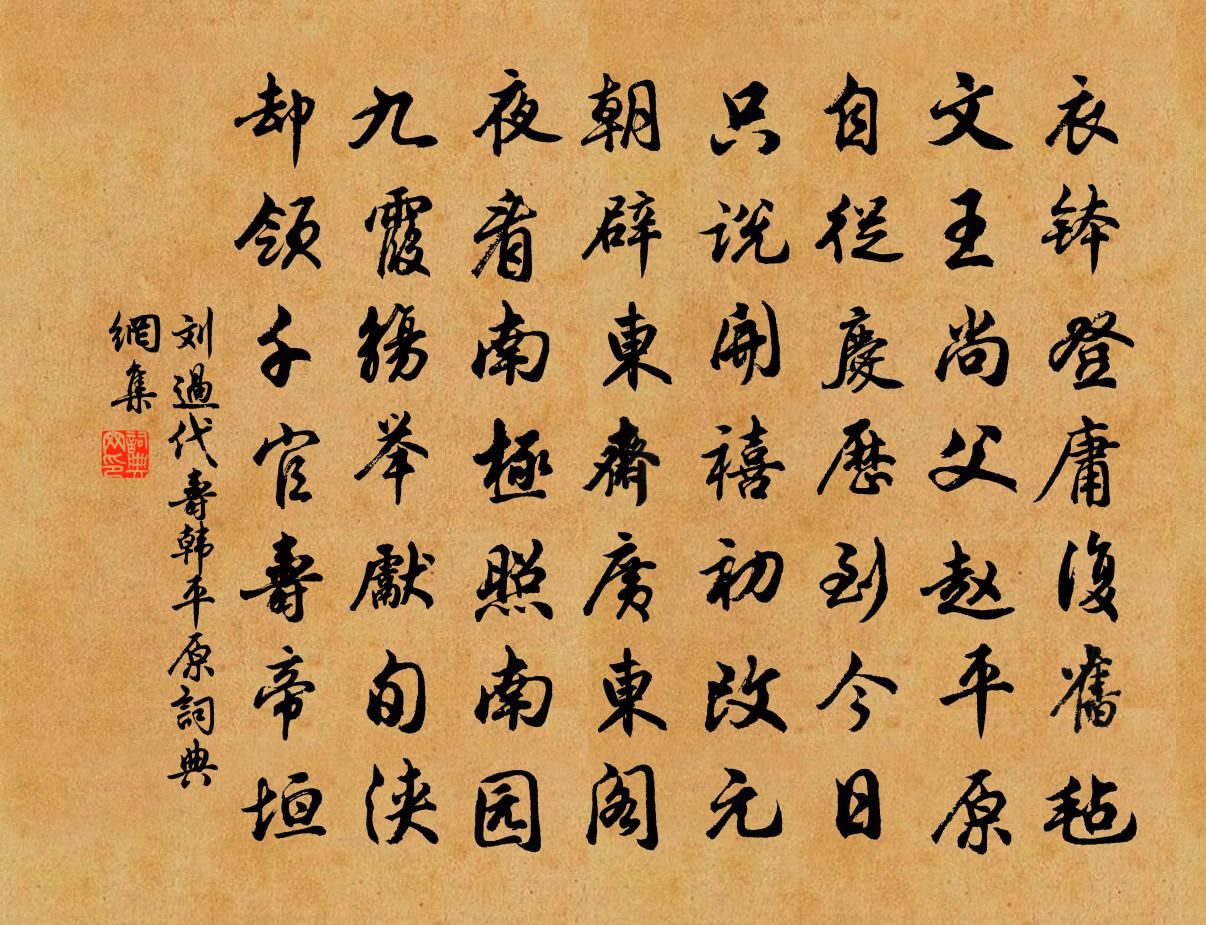 衣钵登庸復舊毡
文王尚父赵平原
自從慶歷到今日
只説開禧初改元
朝辟東齋廣東阁
夜看南極照南园
九霞觴举獻旬浃
却领千官壽帝垣
刘過代壽韩平原詞典
網集
詞典
网印